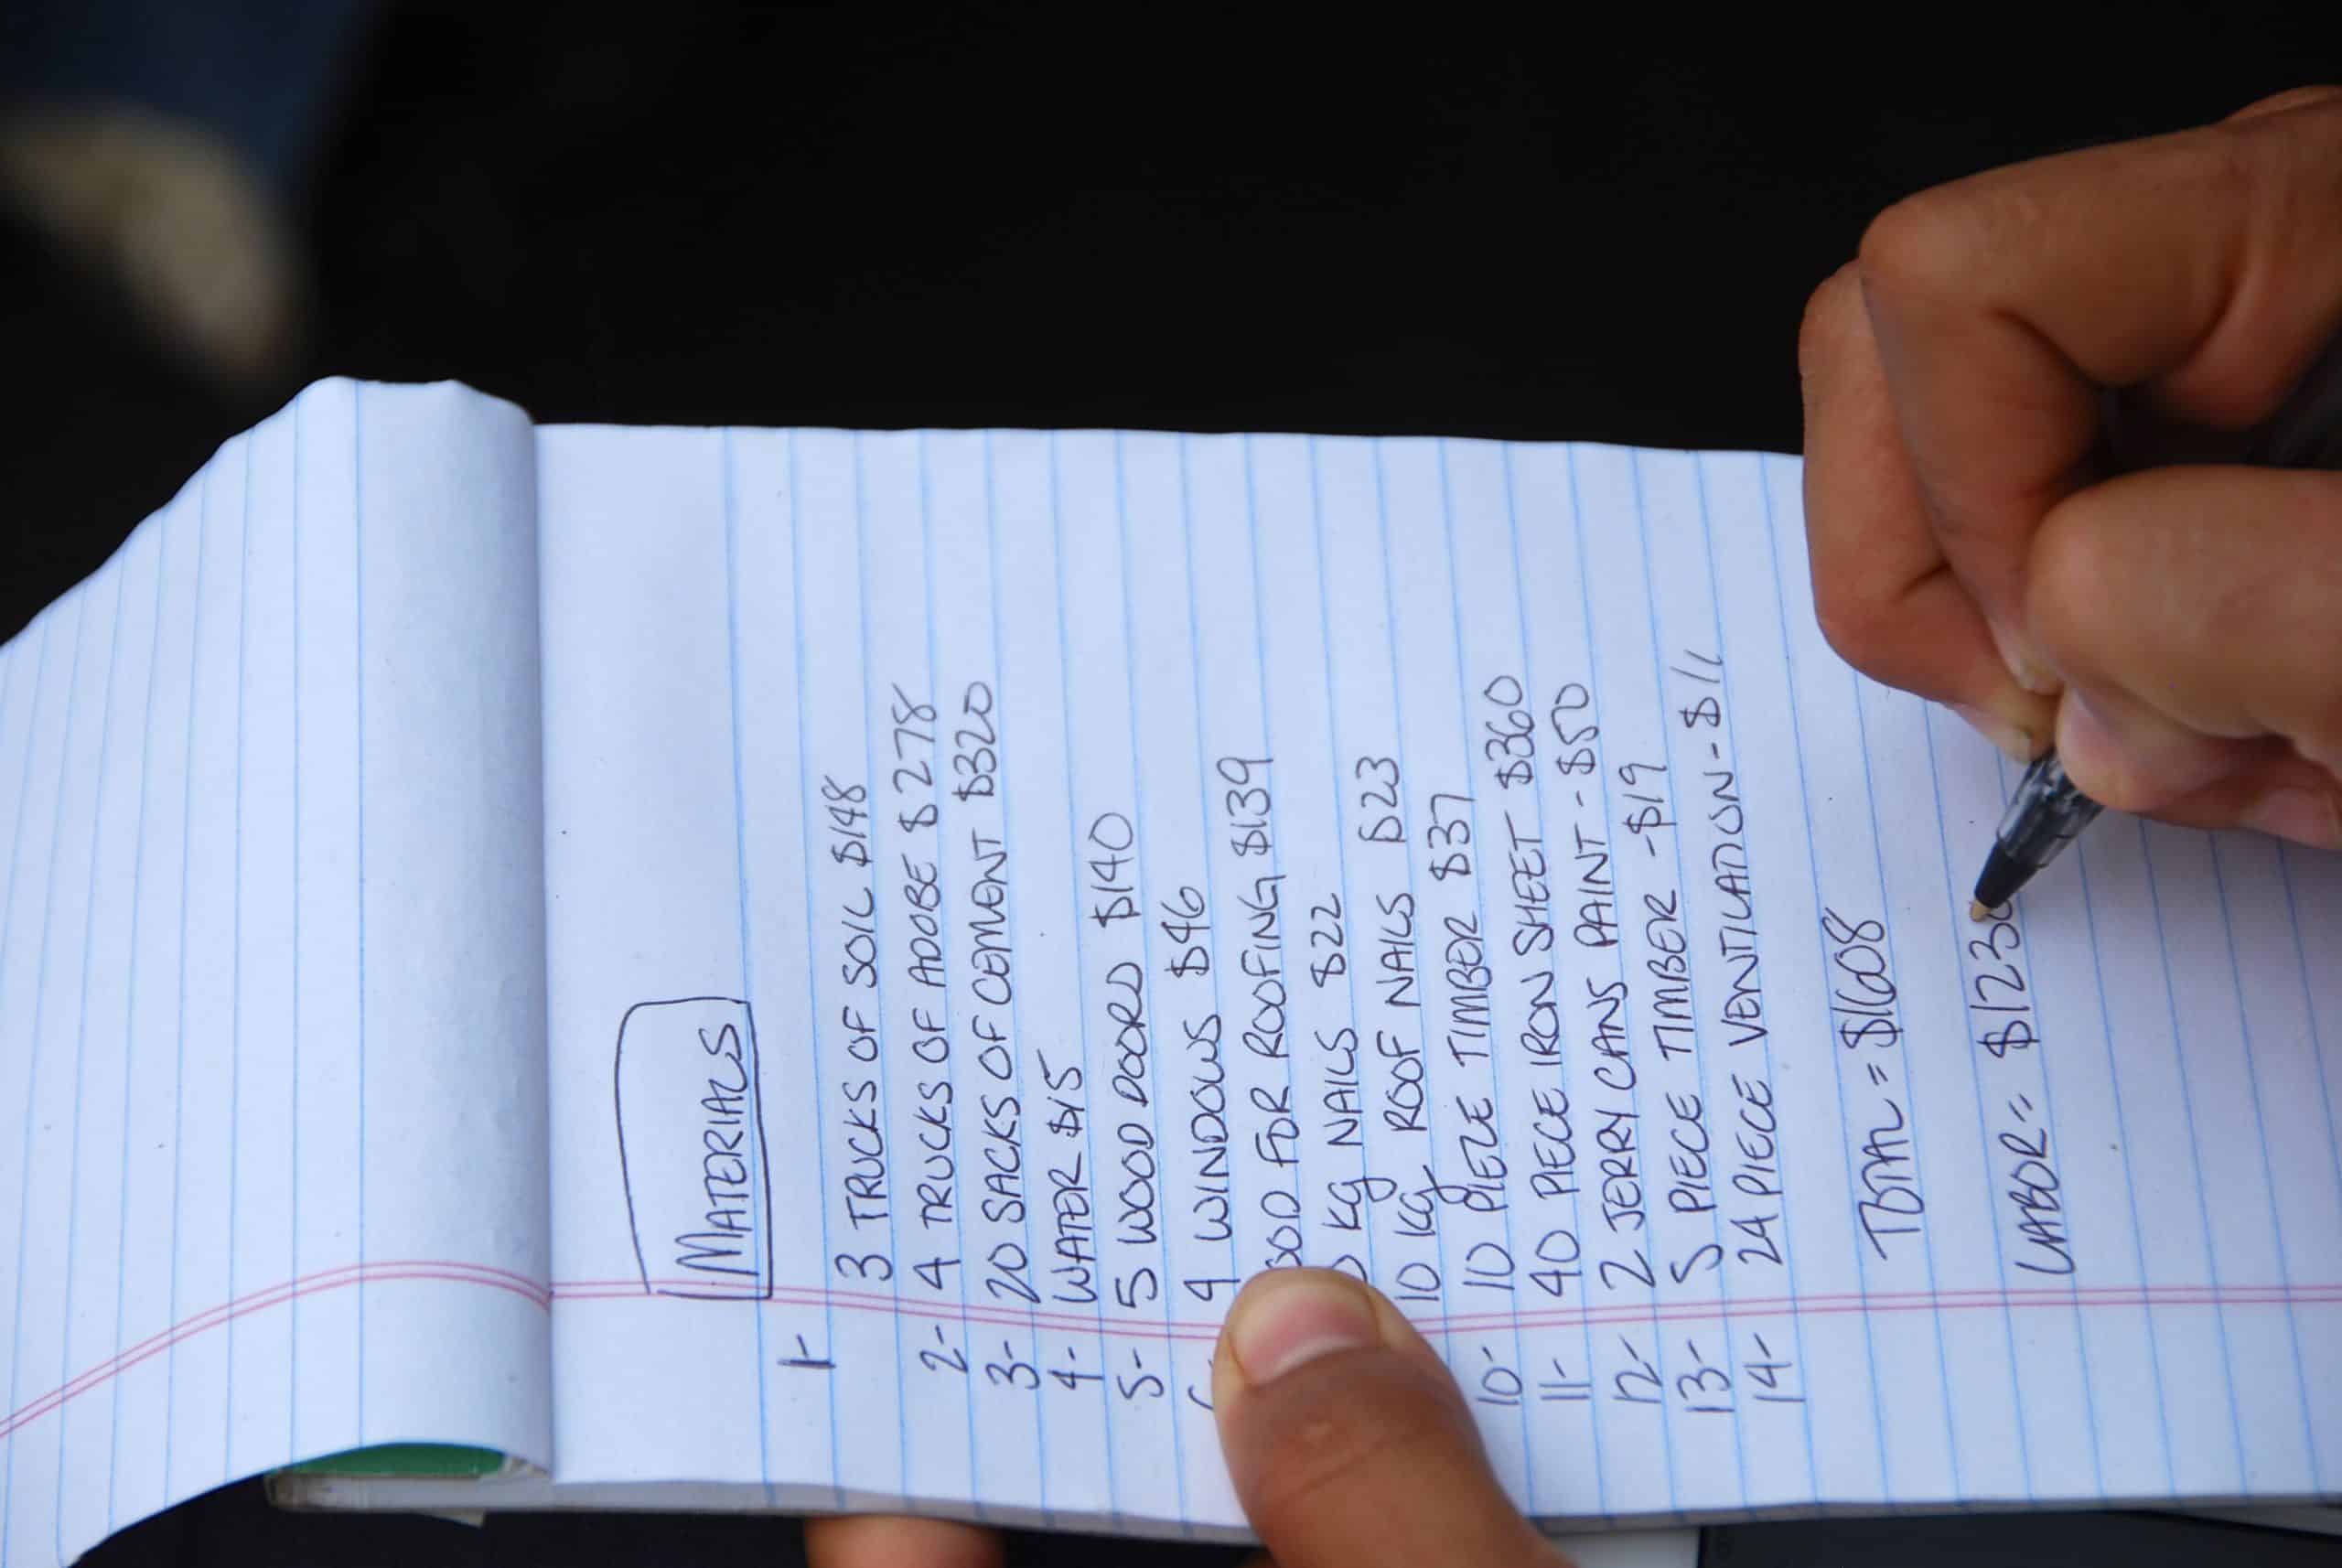 MATERIALS
1- 3 TRUCKS OF SOIL $148
2- 4 TRUCKS OF ADOBE $278
3- 20 SACKS OF CEMENT $320
4- WATER $15
5- 5 WOOD DOORS $140
4 WINDOWS $46
FOR ROOFING $139
KG NAILS $22
10 KG ROOF NAILS $23
10- 10 PIECE TIMBER $37
11- 40 PIECE IRON SHEET $360
12- 2 JERRY CANS PAINT - $50
13- 5 PIECE TIMBER - $19
14- 24 PIECE VENTILATION - $11
TOTAL = $1608
LABOR = $1230